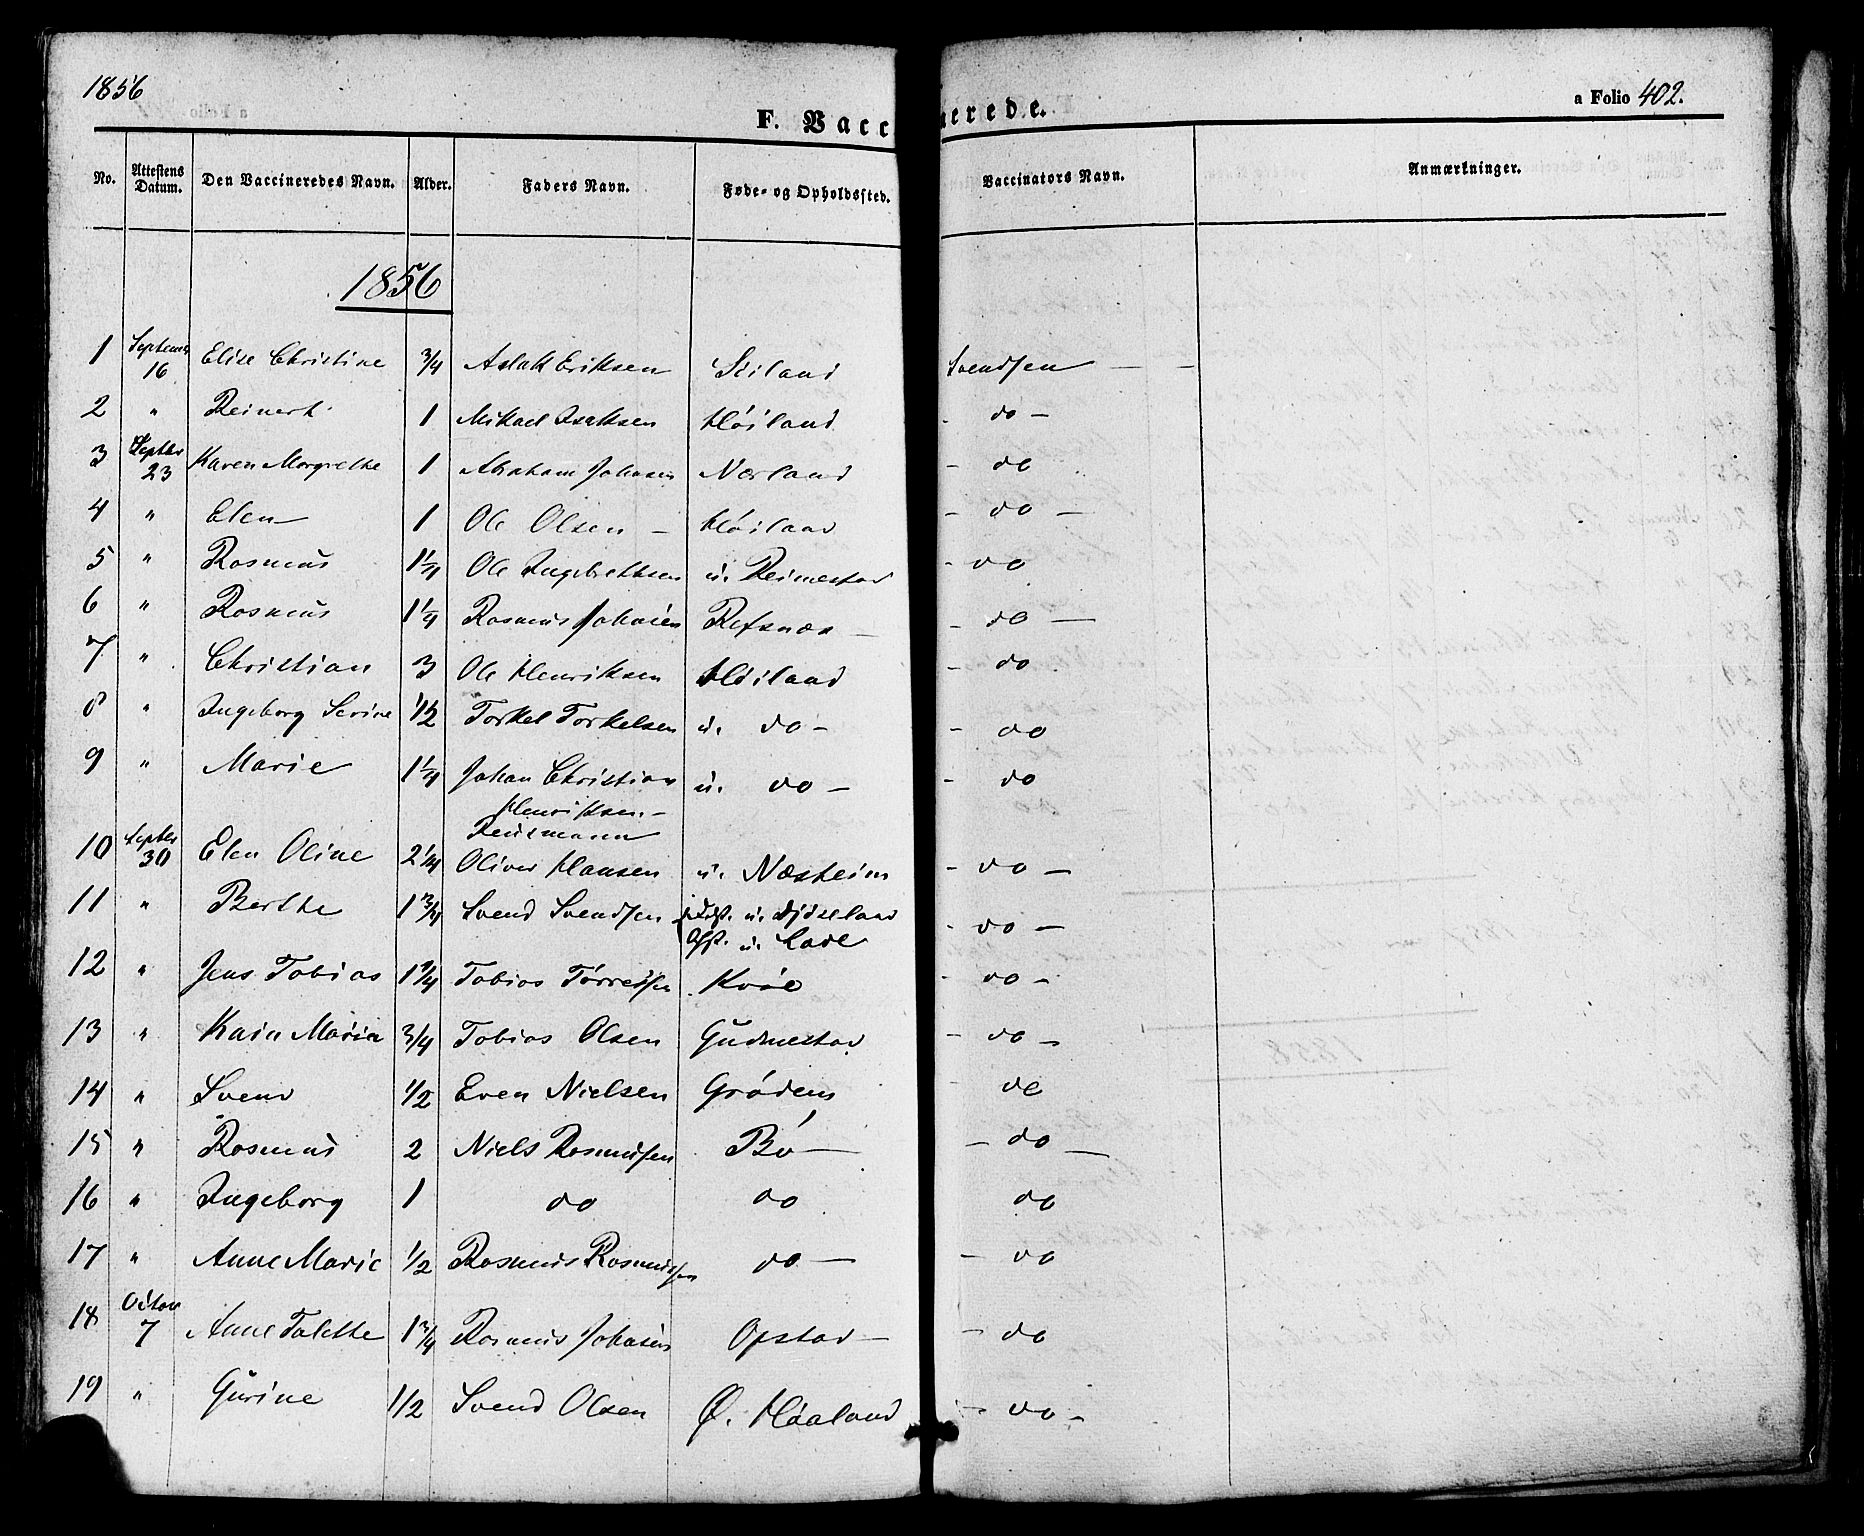 1856
a Folio 402.
F. Vaccinerede.
No. Attestens Datum. Den Vaccineredes Navn. Alder. Faders Navn. Føde- og Opholdssted. Vaccinators Navn. Anmærkninger.
1856
1 Septemr 16 Elise Christine 3/4 Aslak Eriksen Siiland Svendsen — —
2 " Reinert 1 Mikael Isaksen Høiland - do -
3 Septbr 23 Karen Margrethe 1 Abraham Johnsen Nærland - do
4 " Elen 1 Ole Olsen - Høiland - do -
5 " Rasmus 1 1/4 Ole Ingebrethsen u. Reimestad - do
6 " Rasmus 1 1/4 Rasmus Johnsen Refsnæs - - do -
7 " Christian 3 Ole Henriksen Høiland - do
8 " Ingeborg Serine 1 1/2 Torkel Torkelsen u. do - - do
9 " Marie 1 1/4 Johan Christian u. do - - do
Henriksen -
Reusmann
10 Septbr 30 Elen Oline 2 1/4 Oliver Hansen u. Næsheim - do -
11 " Berthe 1 3/4 Svend Svendsen u. Njøseland - do -
u. Lade
12 " Jens Tobias 1 1/4 Tobias Tørresen Kvie - do -
13 " Karn Maria 3/4 Tobias Olsen Gudmestad - do -
14 " Svend 1/2 Even Nielsen Grødem do
15 " Rasmus 2 Niels Rasmusen Bø - - do -
16 " Ingeborg 1 do do do
17 " Anne Marie 1/2 Rasmus Rasmussen do - - do
18 Octor 7 Anne Talette 1 3/4 Rasmus Johnsen Opstad - - do
19 " Gurine 1/2 Svend Olsen Ø. Haaland - do -